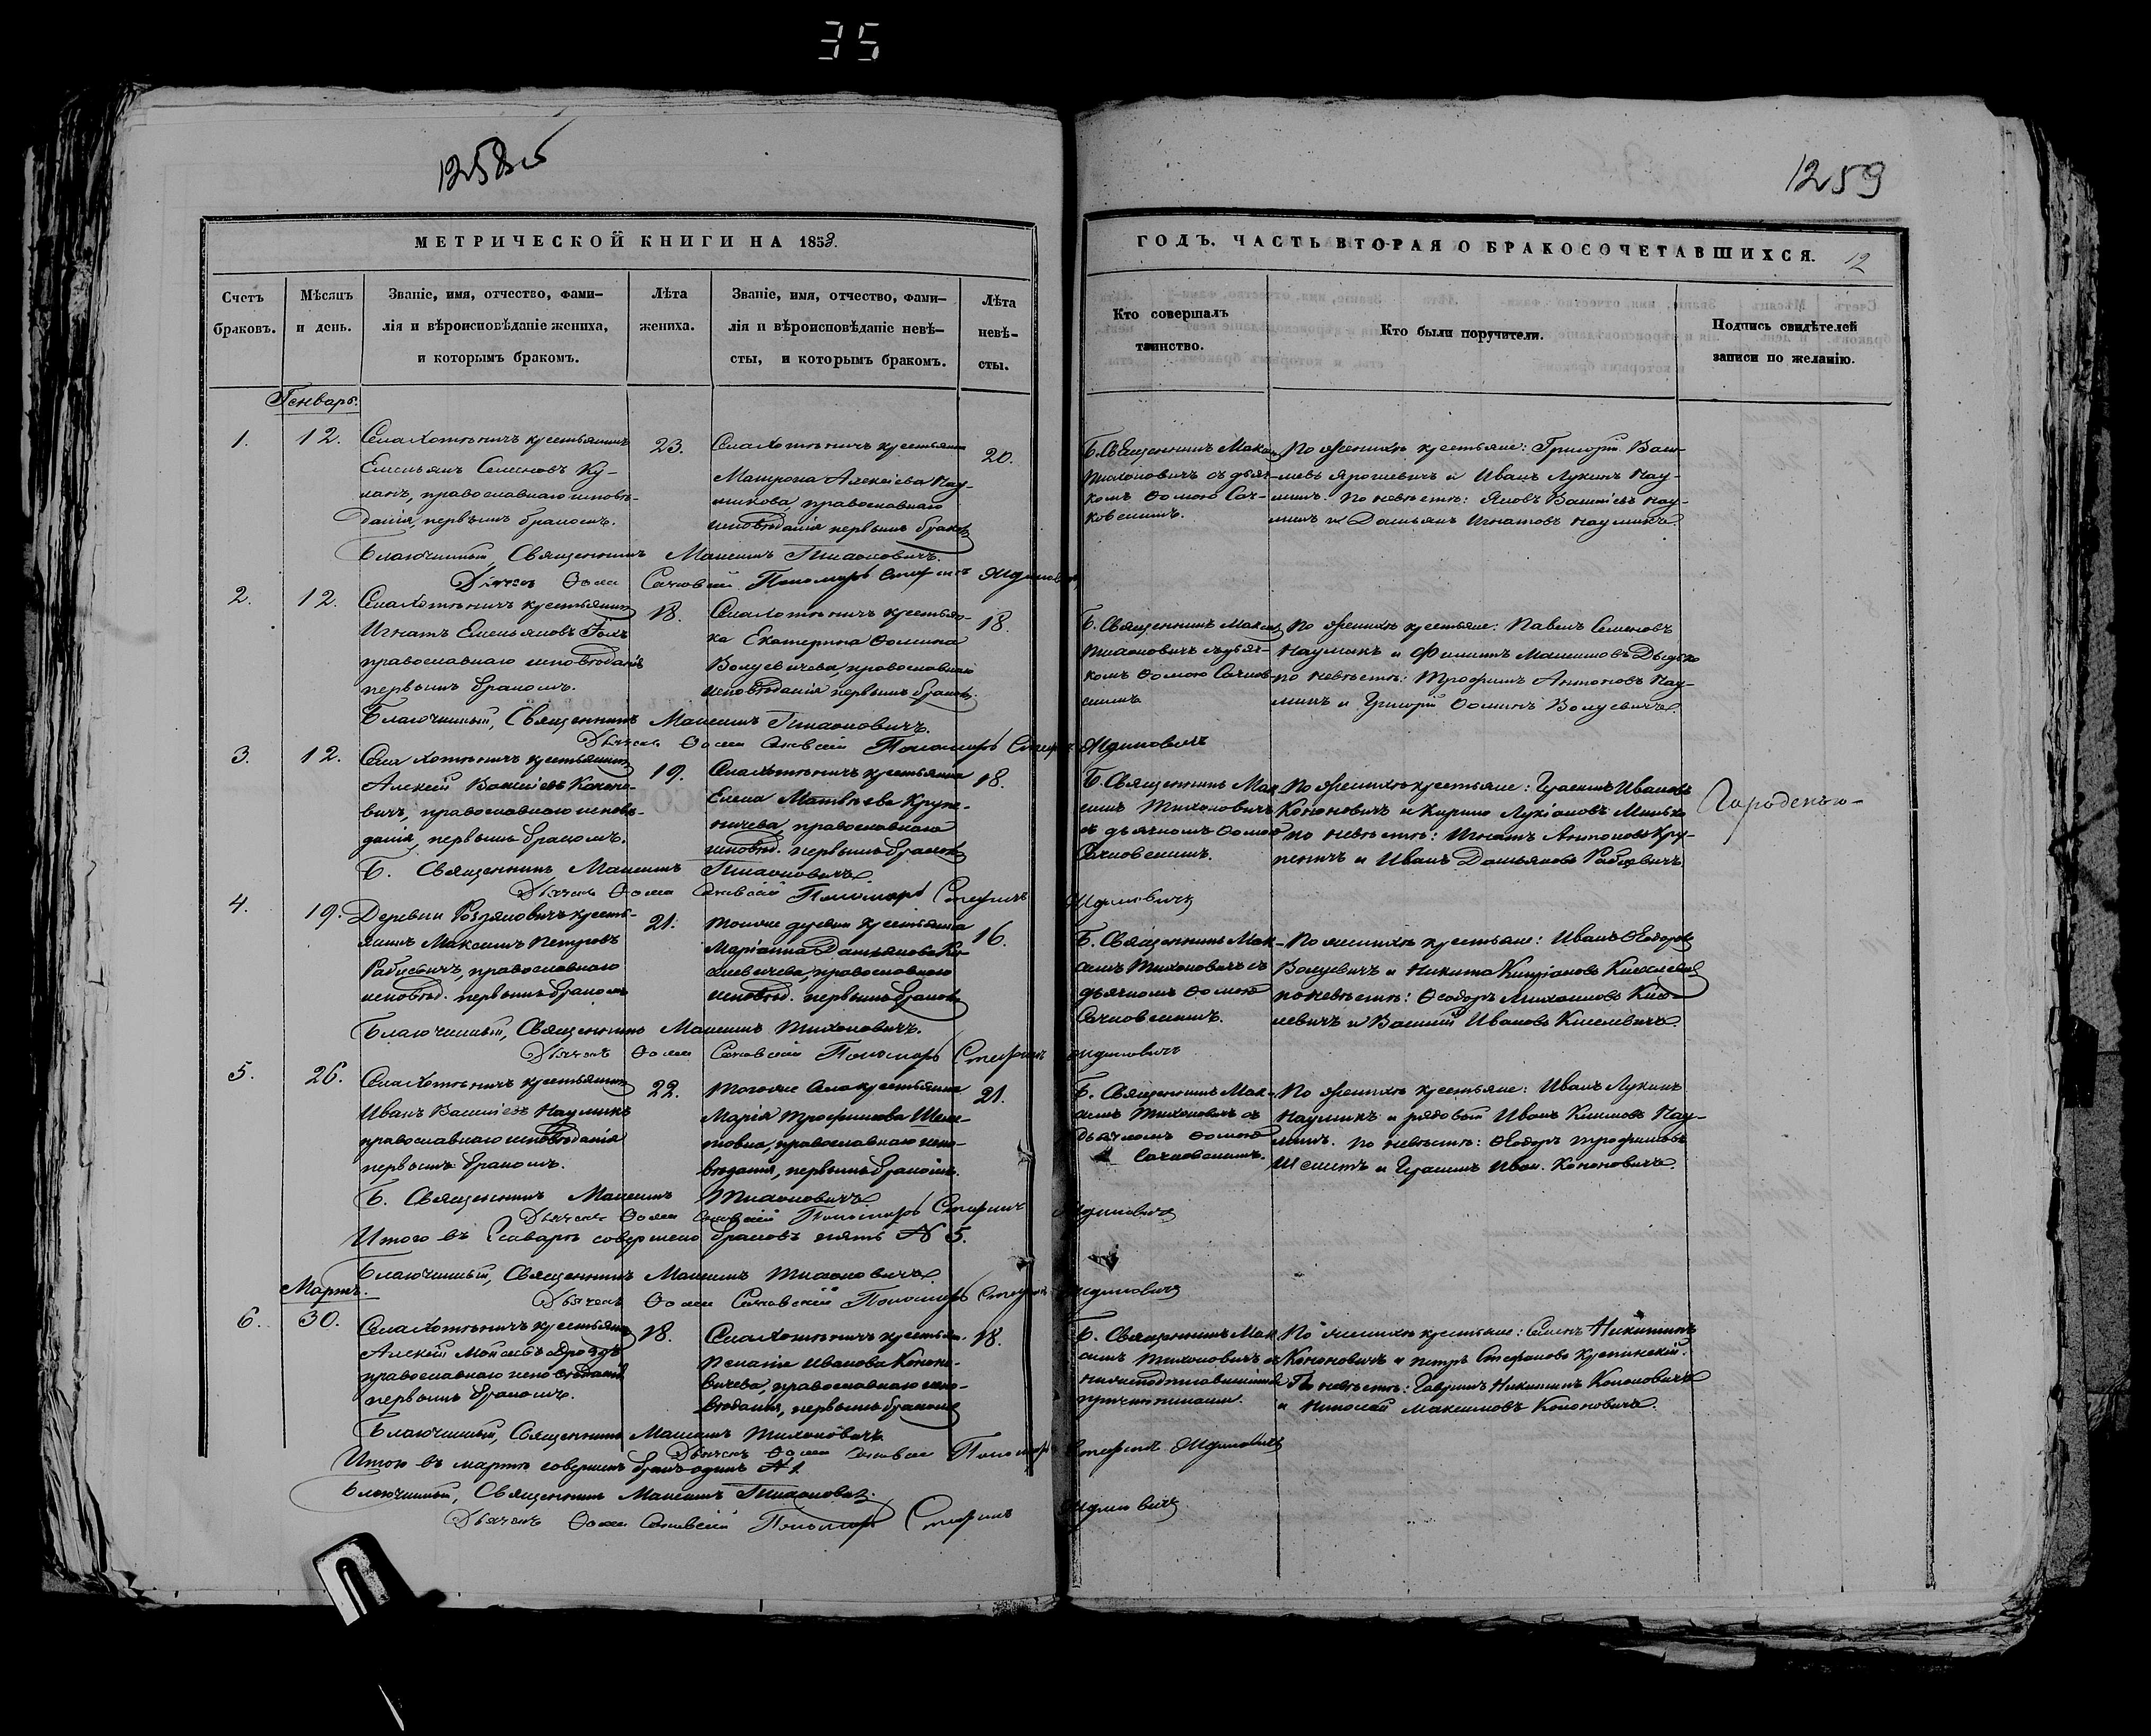 35
1258
1259
МЕТРИЧЕСКОЙ КНИГИ НА 1858.
ГОДЪ. ЧАСТЬ ВТОРАЯ О БРАКОСОЧЕТАВШИХСЯ. 12
Счетъ браковъ.
Мѣсяцъ и день.
Званіе, имя, отчество, фами-
лія и вѣроисповѣданіе жениха,
и которымъ бракомъ.
Лѣта жениха.
Званіе, имя, отчество, фами-
лія и вѣроисповѣданіе невѣ-
сты, и которымъ бракомъ.
Лѣта невѣ-
сты.
Кто совершалъ
таинство.
Кто были поручители.
Подпись свидѣтелей
записи по желанію.
Генварь.
1.
12.
Села Хотыничъ крестьянинъ
Емельянъ Семеновъ Ку-
православнаго исповѣ-
данія, первымъ бракомъ.
23.
Села Хотыничъ крестьянка
Матрона Алексіева Нау-
микова, православнаго
исповѣданія первымъ бракомъ
20.
Б. Священникъ Максимъ
Тихоновичъ съ дьяч-
комъ Ѳомою Сач-
ковскимъ.
По женихѣ крестьяне: Григорій Васи-
льевъ Ярошевичъ и Иванъ Лукинъ Нау-
микъ. По невѣстѣ: Яковъ Васильевъ Нау-
микъ и Демьянъ Игнатовъ Наумикъ.
Благочинный, Священникъ Максимъ Тихоновичъ.
Дьячекъ Ѳома Сачковскій Пономарь Стефанъ
2.
12.
Села Хотыничъ крестьянинъ
Игнатъ Емельяновъ
православнаго исповѣданія
первымъ бракомъ.
18.
Села Хотыничъ крестьян-
ка Екатерина Ѳомина
Волуевичева, православнаго
исповѣданія первымъ бракомъ.
18.
Б. Священникъ Максимъ
Тихоновичъ съ дьяч-
комъ Ѳомою Сачков-
скимъ
По женихѣ крестьяне: Павелъ Семеновъ
Наумикъ и Филипъ Максимовъ Дыдько
по невѣстѣ: Трофимъ Антоновъ Нау-
микъ и Григорій Ѳоминъ Волуевичъ.
Благочинный, Священникъ Максимъ Тихоновичъ.
Дьячекъ Ѳома Сачковскій Пономарь Стефанъ
3.
12.
Села Хотыничъ крестьянинъ
Алексій Васильевъ Кононо-
вичъ, православнаго исповѣ-
данія, первымъ бракомъ.
19.
Села Хотыничъ крестьянка
Елена Матвѣева Крупе-
ничева, православнаго
исповѣд. первымъ бракомъ
18.
Б. Священникъ Мак-
симъ Тихоновичъ
съ дьячкомъ Ѳомою
Сачковскимъ.
По женихѣ крестьяне: Герасимъ Ивановъ
Кононовичъ и Кирило Лукіановъ Минько
по невѣстѣ: Игнатъ Антоновъ Кру-
пеничъ и Иванъ Демьяновъ Рабцевичъ
Б. Священникъ Максимъ Тихоновичъ
Дьячекъ Ѳома Сачковскій Пономарь Стефанъ
4.
19.
Деревни Роздяловичъ кресть-
янинъ Максимъ Петровъ
Рабцевичъ, православнаго
исповѣд. первымъ бракомъ
21.
тойже деревни крестьянка
Маріанна Демьянова Ки-
селевичева, православнаго
исповѣд. первымъ бракомъ
16.
Б. Священникъ Мак-
симъ Тихоновичъ съ
дьячкомъ Ѳомою
Сачковскимъ.
По женихѣ крестьяне: Иванъ Ѳедоровъ
Волуевичъ и Никита Кипріановъ Киселевичъ
по невѣстѣ: Ѳеодоръ Михаиловъ Кисе-
левичъ и Василій Ивановъ Киселевичъ.
Благочинный, Священникъ Максимъ Тихоновичъ.
Дьячекъ Ѳома Сачковскій Пономарь Стефанъ
5.
26.
Села Хотыничъ крестьянинъ
Иванъ Васильевъ Наумикъ
православнаго исповѣданія
первымъ бракомъ.
22.
Тогоже села крестьянка
Марія Трофимова
православнаго испо-
вѣданія, первымъ бракомъ.
21.
Б. Священникъ Мак-
симъ Тихоновичъ съ
дьячкомъ Ѳомою
Сачковскимъ.
По женихѣ крестьяне: Иванъ Лукинъ
Наумикъ и рядовый Иванъ Климовъ Нау-
микъ. По невѣстѣ: Ѳедоръ Трофимовъ
и Герасимъ Иван. Кононовичъ.
Б. Священникъ Максимъ Тихоновичъ
Дьячекъ Ѳома Сачковскій Пономарь Стефанъ
Итого въ Генварѣ совершено браковъ пять № 5.
Благочинный, Священникъ Максимъ Тихоновичъ
Дьячекъ Ѳома Сачковскій Пономарь Стефанъ
Мартъ.
6.
30.
Села Хотыничъ крестьянинъ
Алексій Моисеевъ Дроздъ
православнаго исповѣданія
первымъ бракомъ.
18.
Села Хотыничъ крестьян.
Пелагія Иванова Кононо-
вичева, православнаго испо-
вѣданія, первымъ бракомъ
18.
Б. Священникъ Мак-
симъ Тихоновичъ съ
нижеподписавшимся
причетниками.
По женихѣ крестьяне: Семенъ Никитинъ
Кононовичъ и Петръ Стефановъ
По невѣстѣ: Гавріилъ Никитинъ Кононовичъ
и Николай Максимовъ Кононовичъ.
Благочинный, Священникъ Максимъ Тихоновичъ
Дьячекъ Ѳома Сачковскій Пономарь Стефанъ
Итого въ мартѣ совершенъ бракъ одинъ № 1.
Благочинный, Священникъ Максимъ Тихоновичъ.
Дьячекъ Ѳома Сачковскій Пономарь Стефанъ